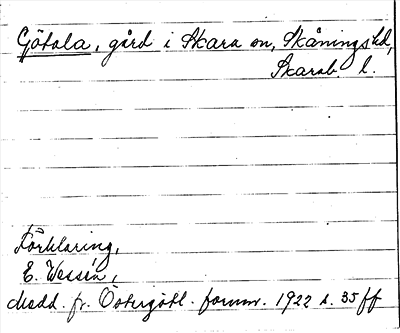 Götala, gård i Skara sn, Skånings hd,
Skarab l.
Förklaring,
E. Wessén,
Medd. fr. Östergötl. fornm. 1922 s. 35 ff